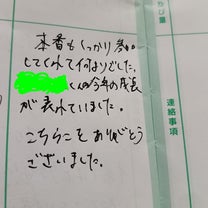 本番もしっかり参加
してくれて何よりでした。
くんの今年の成長
が表れていました。
こちらこそありがとう
ございました。
連絡事項